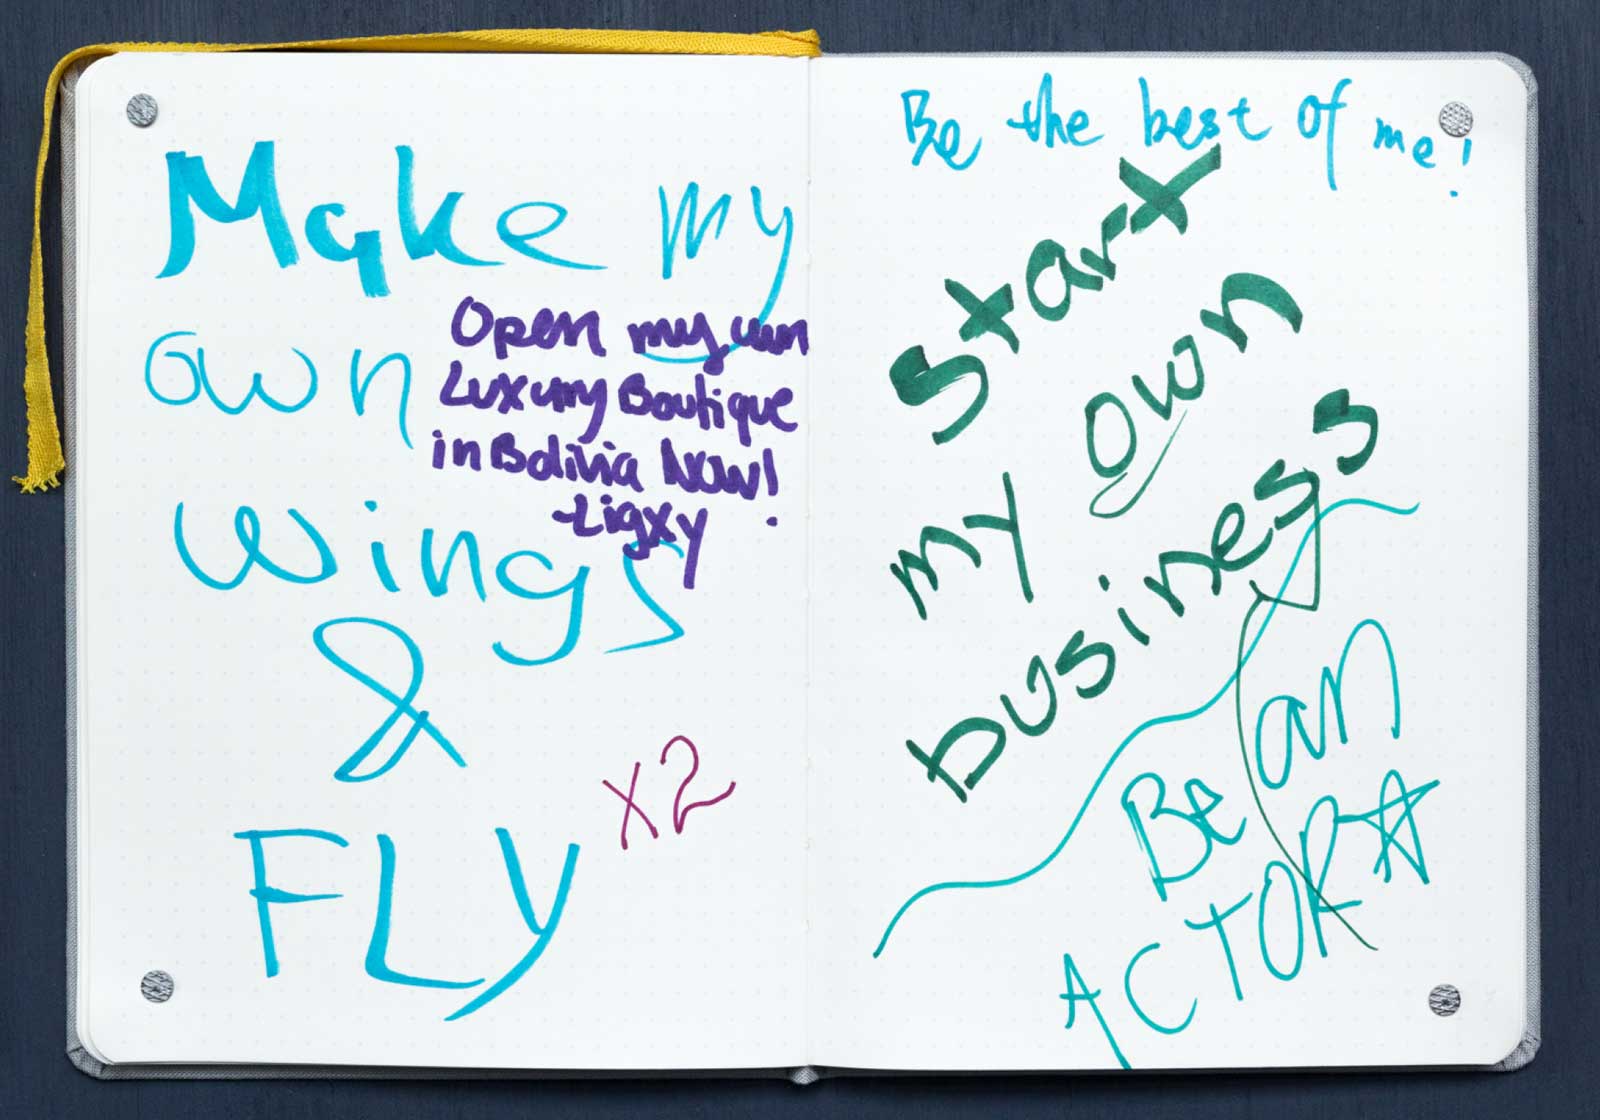 Make my
own
wings
&
FLY
Open my own
Luxury Boutique
in Bolivia Now!
-Ligxy
x2
Be the best of me!
Start
my own
business
Be an
ACTOR